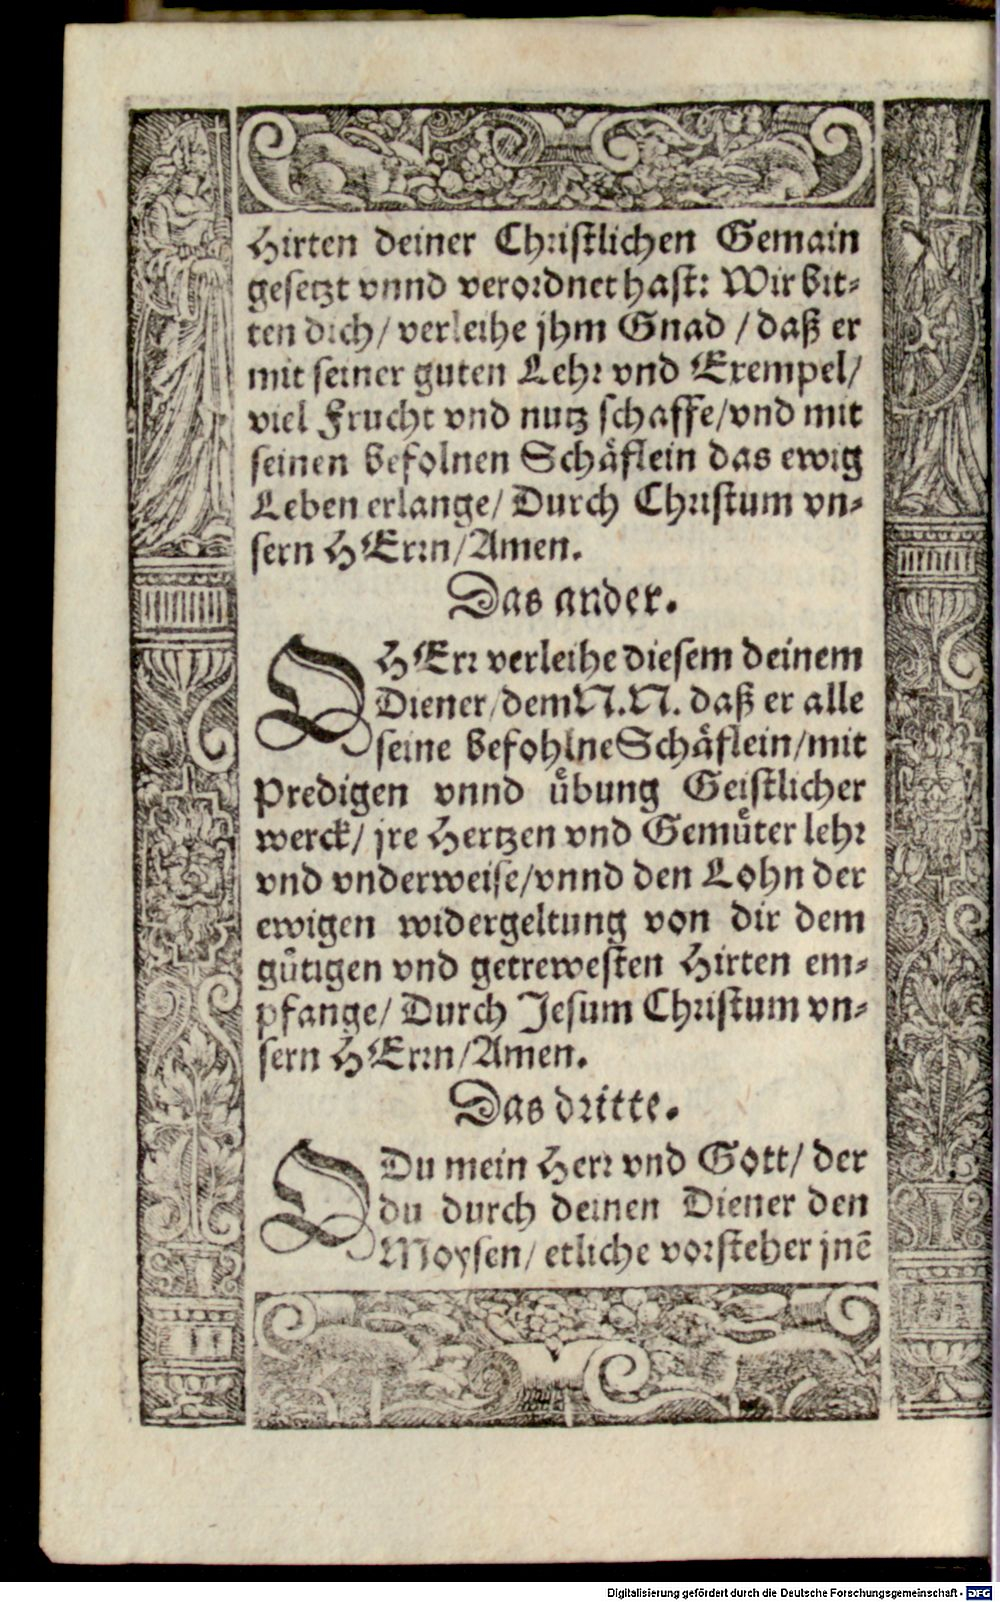 Hirten deiner Christlichen Gemain
gesetzt vnnd verordnet hast: Wir bit-
ten dich/ verleihe jhm Gnad / daß er
mit seiner guten Lehr vnd Exempel/
viel Frucht vnd nutz schaffe/vnd mit
seinen befolnen Schäflein das ewig
Leben erlange/ Durch Christum vn-
sern HErrn/Amen.
Das ander.
O HErr verleihe diesem deinem
Diener/dem N.N. daß er alle
seine befohlne Schäflein/mit
Predigen vnnd übung Geistlicher
werck/ jre Hertzen vnd Gemüter lehr
vnd vnderweise/vnnd den Lohn der
ewigen widergeltung von dir dem
gütigen vnd getrewesten Hirten em-
pfange/ Durch Jesum Christum vn-
sern HErrn/Amen.
Das dritte.
O Du mein Herr vnd Gott/ der
du durch deinen Diener den
Moysen/ etliche vorsteher jnē
Digitalisierung gefördert durch die Deutsche Forschungsgemeinschaft - DFG